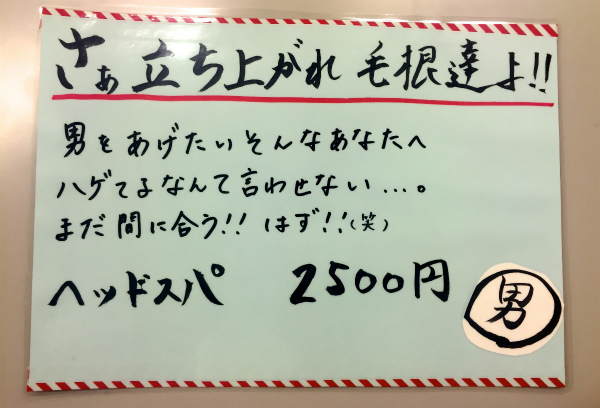 さぁ立ち上がれ 毛根達よ!!
男をあげたいそんなあなたへ
ハゲてるなんて言わせない...。
まだ間に合う!! はず!!(笑)
ヘッドスパ 2500円
男